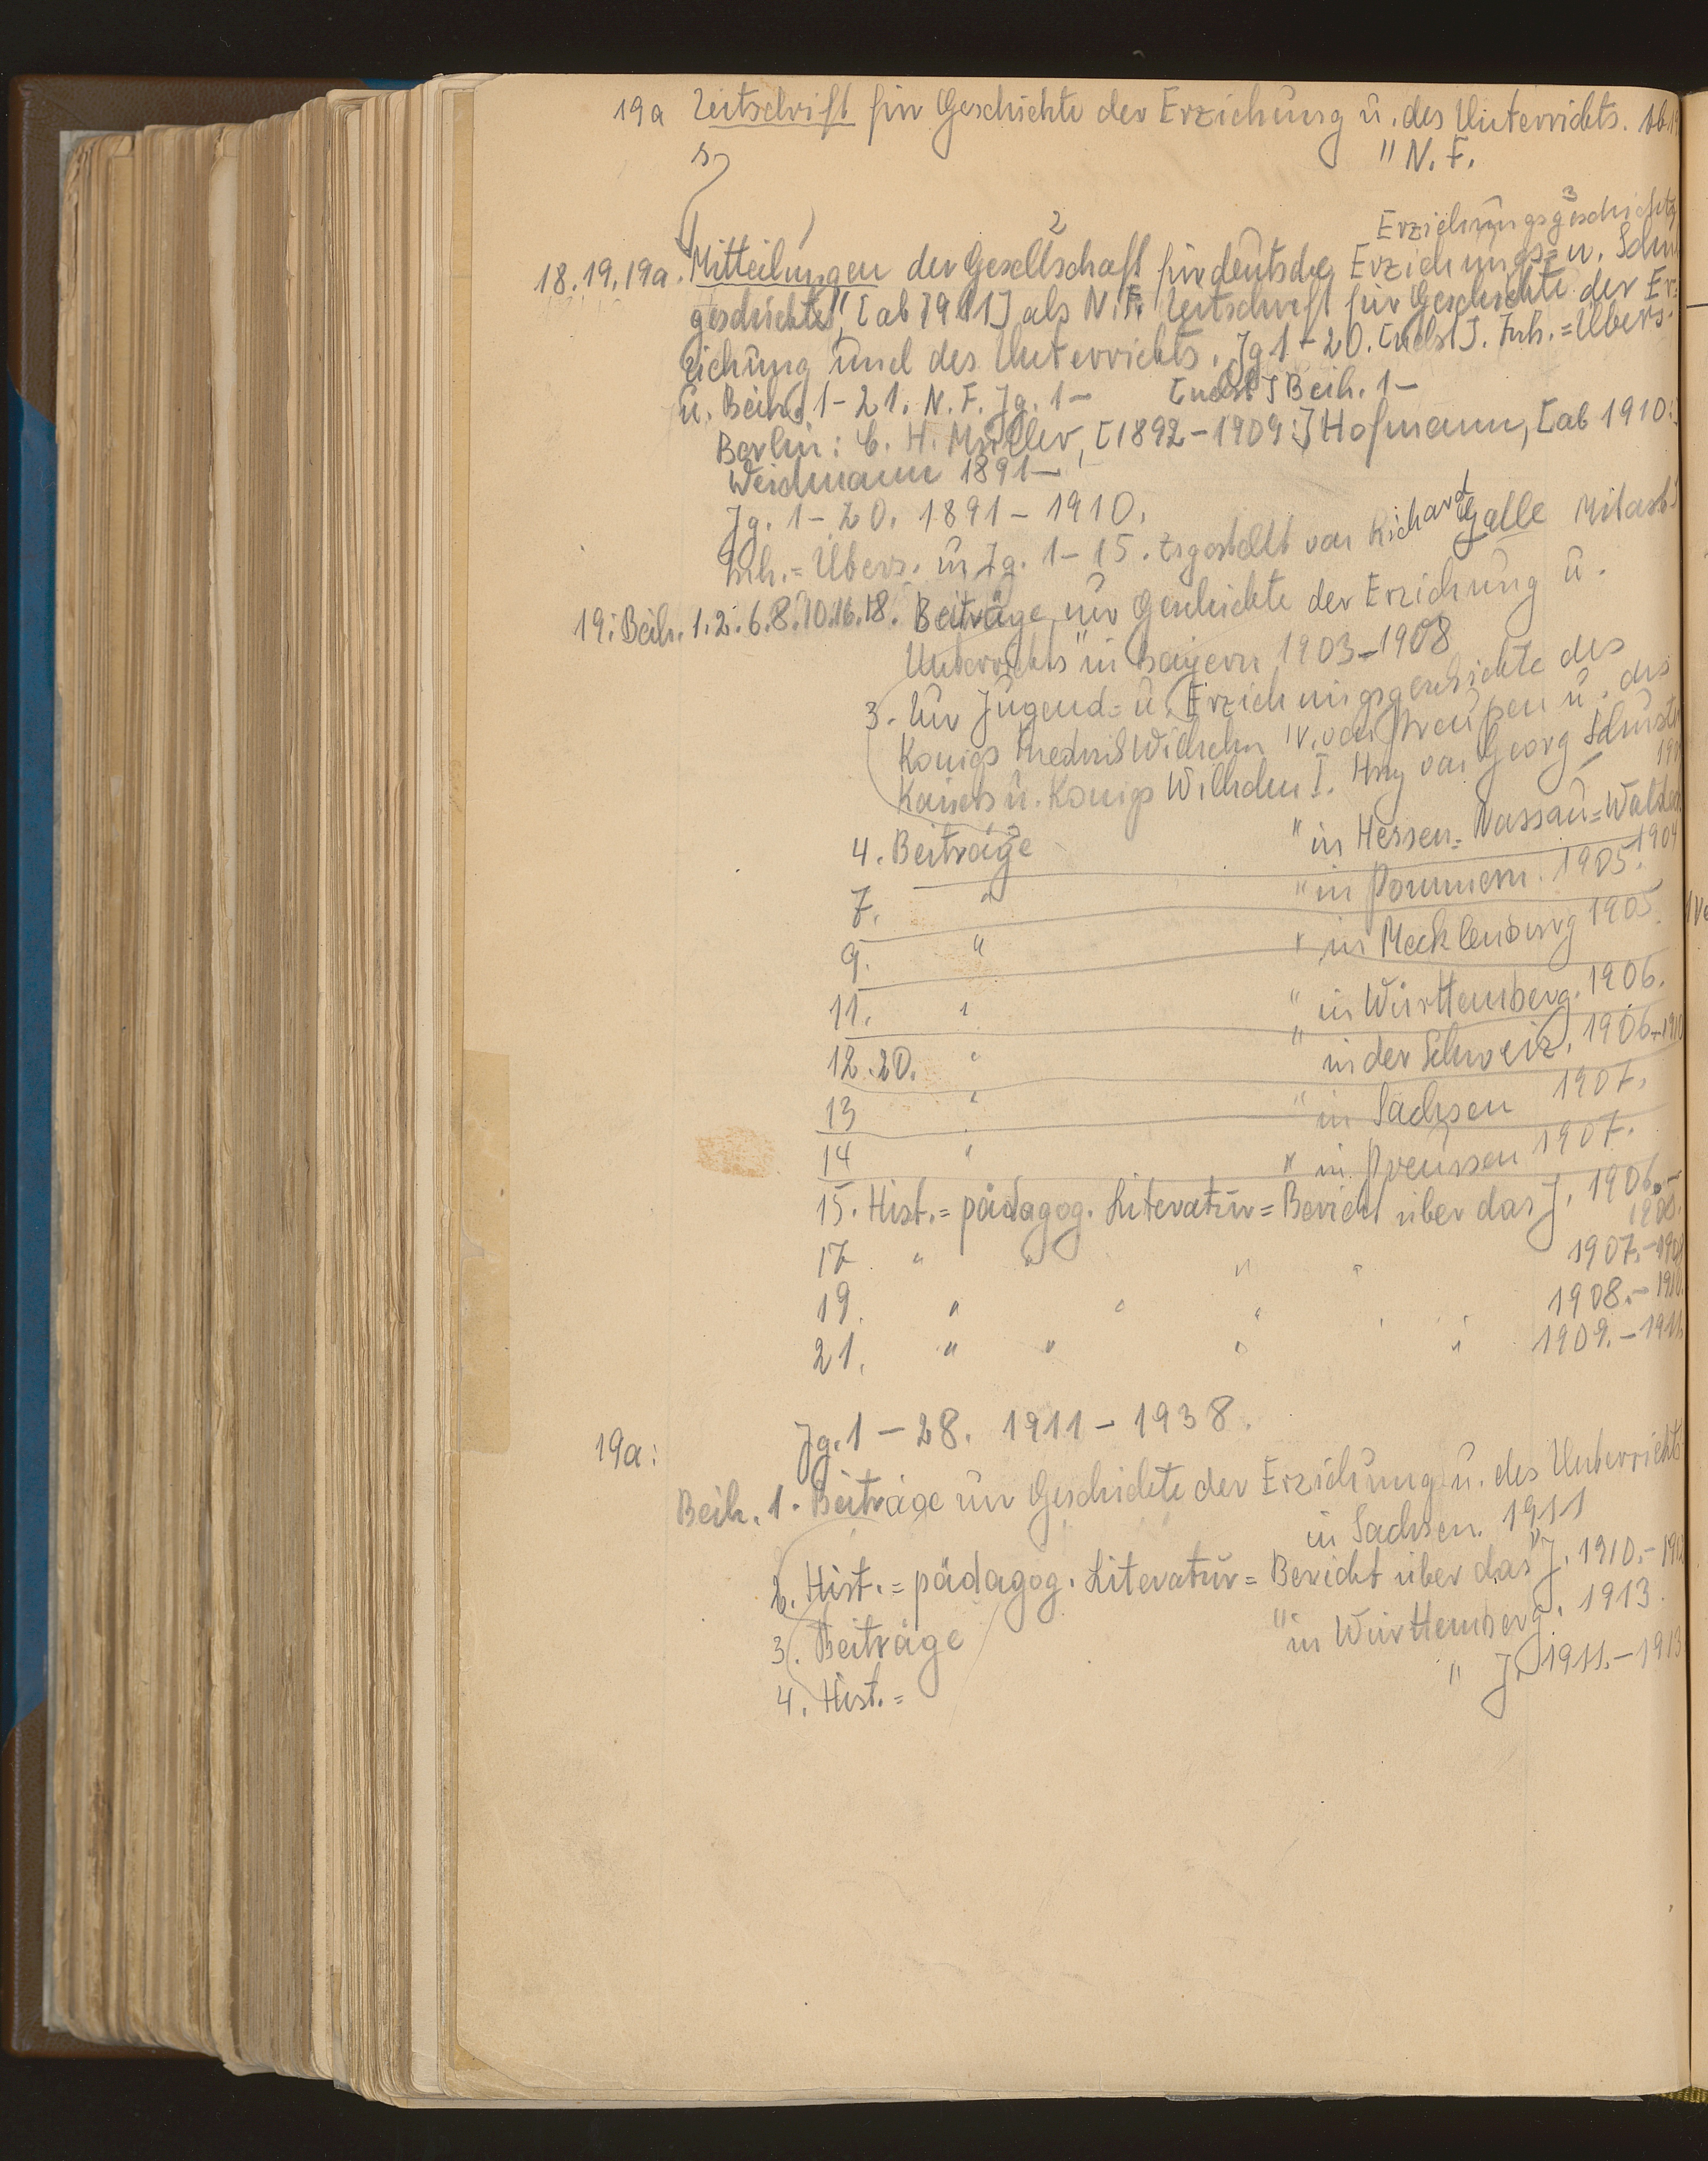 19a Zeitschrift für Geschichte der Erziehung u. des Unterrichts.
" N. F.
s
1 2 3
Erziehungsgeschichte
18.19.19a. Mitteilungen der Gesellschaft für deutsche Erziehungs= u. Schul
geschichte", [ab 1911] als N.F. Zeitschrift für Geschichte der Er=
ziehung und des Unterrichts. Jg 1-20. [nebst]. Inh.=Übers.
u. Beih. 1-21. N. F. Jg. 1- [nebst] Beih. 1-
Berlin: [1892-1909:] Hofmann, [ab 1910:]
Weidmann 1891-
Jg. 1-20. 1891-1910.
Inh.=Übers. zu Jg. 1-15. zsgestellt von Richard Galle
19: Beih. 1.2.6.8.10.16.18. Beiträge zur Geschichte der Erziehung u.
Unterrichts" in Bayern 1903-1908
3. Zur Jugend= u. Erziehungsgeschichte des
Königs Friedrich Wilhelm IV. von Preußen u. des
Kaisers u. Königs Wilhelm I. Hrsg von Georg Schust
4. Beiträge " in Hessen=Nassau=Waldeck
1904
7. " " in Pommern. 1905.
9. " " in Mecklenburg 1905.
11. " " in Württemberg. 1906.
12.20. " " in der Schweiz. 1906-1910
13 " " in Sachsen 1907.
14 " " in Preussen 1907.
15. Hist.=pädagog. Literatur=Bericht über das J. 1906.-
17 " " " " 1907.-1908
19. " " " " 1908.-1910.
21. " " " " 1909.-1911.
19a: Jg. 1-28. 1911-1938.
Beih. 1. Beiträge zur Geschichte der Erziehung u. des Unterrichts
in Sachsen. 1911
2. Hist.=pädagog. Literatur=Bericht über das J. 1910.-
3. Beiträge " in Württemberg. 1913.
4. Hist.= " J. 1911.-1913